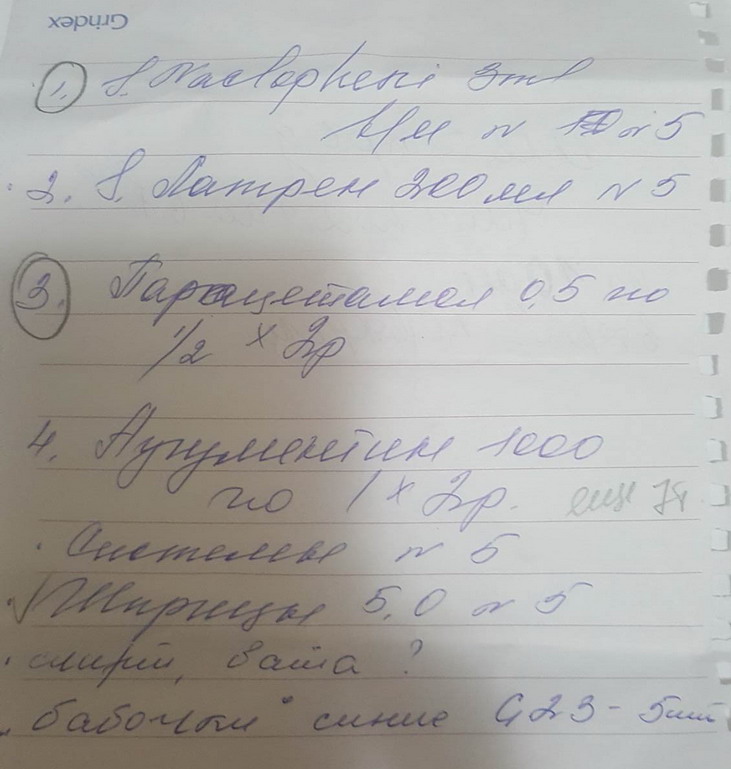 Grindex
1. S. Naclopheni 3ml
в/м N 5
2. S. Латрен 200 мл N 5
3. Парацетамол 0,5 по
1/2 x 2р
4. Аугументин 1000
по 1 x 2р. еще 7
Системы N 5
Шприцы 5,0 N 5
спирт, вата ?
бабочки синие G23 - 5шт